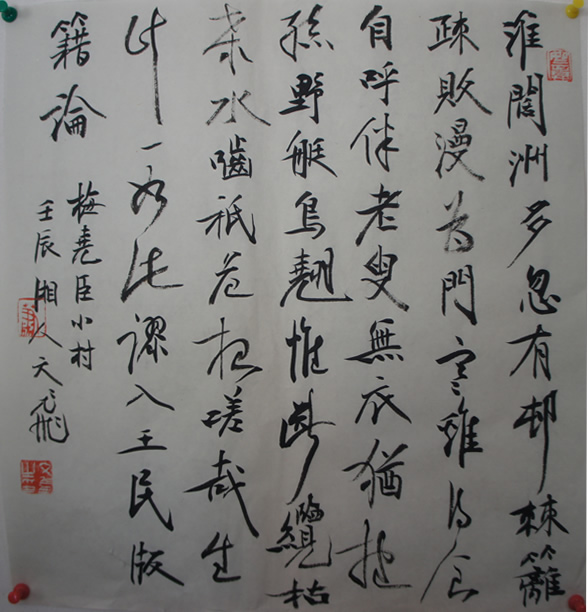 淮闊洲多忽有邨棘籬
疎敗漫為門寒雞得食
自呼伴老叟無衣猶抱
孫野艇鳥翹惟斷纜枯
桒水嚙祇危根嗟哉生
計一如此謬入王民版
籍論
梅堯臣小村
壬辰湘人天飛